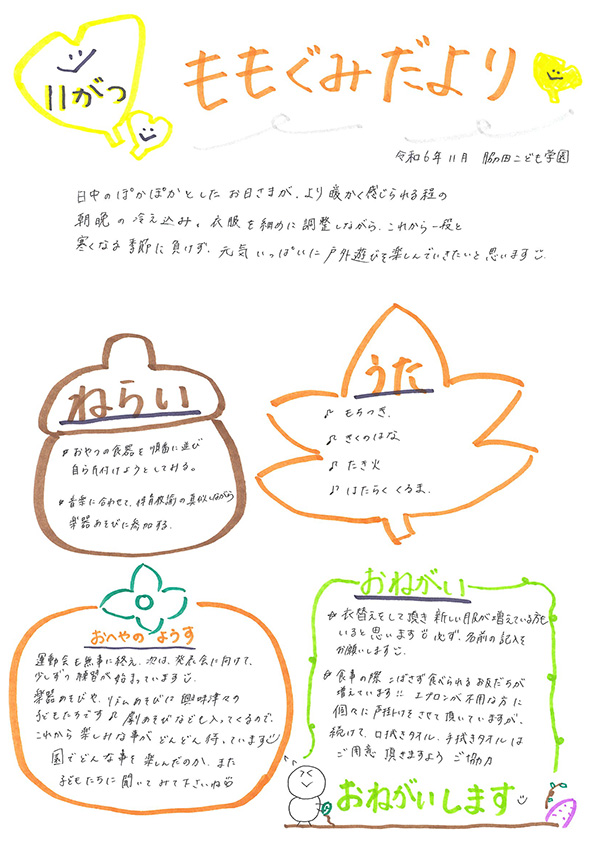 11がつ
ももぐみだより
令和6年11月 脇田こども学園
日中のぽかぽかとしたお日さまが、より暖かく感じられる程の
朝晩の冷え込み。衣服を細めに調整しながら、これから一段と
寒くなる季節に負けず、元気いっぱいに戸外遊びを楽しんでいきたいと思います
ねらい
おやつの食器を順番に並び
自ら片付けようとしてみる。
音楽に合わせて、保育教諭の真似しながら
楽器あそびに参加する。
うた
♪ もちつき
♪ きくのはな
♪ たき火
♪ はたらくくるま
おへやのようす
運動会も無事に終え、次は、発表会に向けて、
少しずつ練習が始まっています
楽器あそびや、リズムあそびに興味津々の
子どもたちです♪ 劇あそびなども入ってくるので、
これから楽しみな事がどんどん待っています
園でどんな事を楽しんだのか、また
子どもたちに聞いてみて下さいね
おねがい
衣替えをして頂き新しい服が増えている方も
いると思います 必ず、名前の記入を
お願いします
食事の際こぼさず食べられるお友だちが
増えています!! エプロンが不用な方に
個々に声掛けをさせて頂いていますが、
続けて、口拭きタオル、手拭きタオルは
ご用意頂きますようご協力
おねがいします